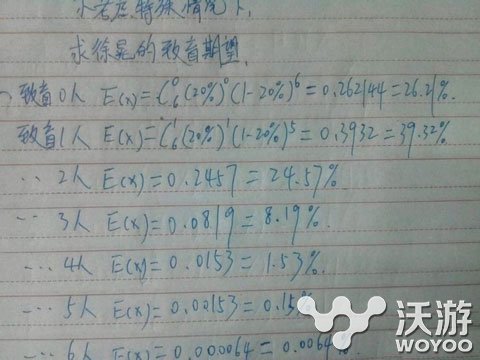 不考虑特殊情况下,
求徐晃的致盲期望.
致盲0人 E(x)=C₆⁰(20%)⁰(1-20%)⁶=0.262144=26.21%
致盲1人 E(x)=C₆¹(20%)¹(1-20%)⁵=0.3932=39.32%
... 2人 E(x)=0.2457=24.57%.
... 3人 E(x)=0.0819=8.19%.
... 4人 E(x)=0.0153=1.53%.
... 5人 E(x)=0.00153=0.15%
... 6人 E(x)=0.000064=0.0064%.
沃游
WOYOO